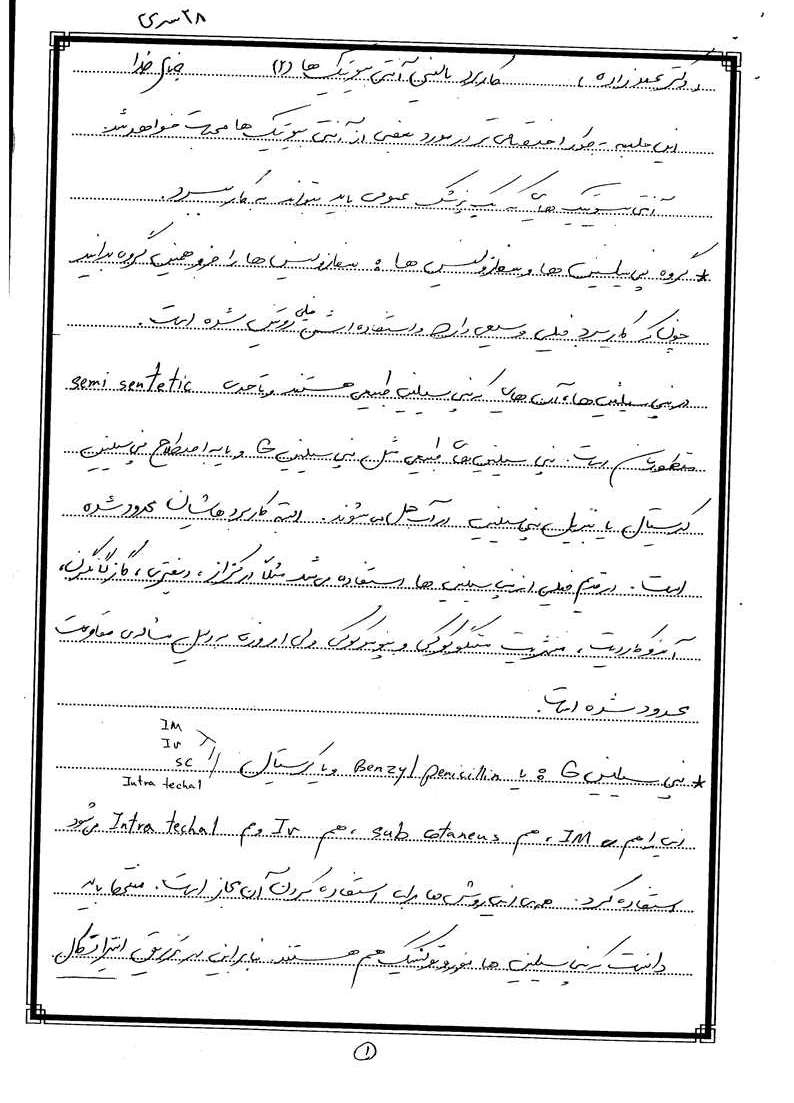 ۲۸ سری
دکتر عمو زاده، کاربرد بالینی آنتی بیوتیک ها (۲) بنام خدا
این جلسه به طور اختصاصی تر در مورد بعضی از آنتی بیوتیک ها صحبت خواهد شد.
آنتی بیوتیک های که یک پزشک عمومی باید بتواند به کار ببرد.
* گروه پنی سیلین ها و سفالوسپرین ها : سفالوسپرین ها را جزو همین گروه بدانید
چون که کاربرد خیلی وسیعی دارد و استفاده اش خیلی روتین شده است.
در پنی سیلین ها، آن های که پنی سیلین طبیعی هستند و تا حدی semi sentetic
منظورمان است. پنی سیلین های طبیعی مثل پنی سیلین G و یا به اصطلاح پنی سیلین
کریستال یا بنزیل پنی سیلین در آب حل می شوند. البته کاربردهاشان محدود شده
است. در قدیم خیلی از پنی سیلین ها استفاده می شد مثلاً در کزاز، دیفتری، گاز گانگرن،
آندوکاردیت، مننژیت مننگوکوکی و پنوموکوکی ولی امروزه به دلیل مسأله ی مقاومت
محدود شده است.
IM
Iv
SC
Intra techal
* پنی سیلین G : یا Benzyl penicillin و یا کریستال
این را هم IM، هم sub cotaneus، هم Iv و هم Intra techal می شود
استفاده کرد. همه ی این روش ها برای استفاده کردن آن مجاز است. منتها باید
دانست که پنی سیلین ها نوروتوکسیک هم هستند. بنابراین در تزریق اینتراتکال
۱